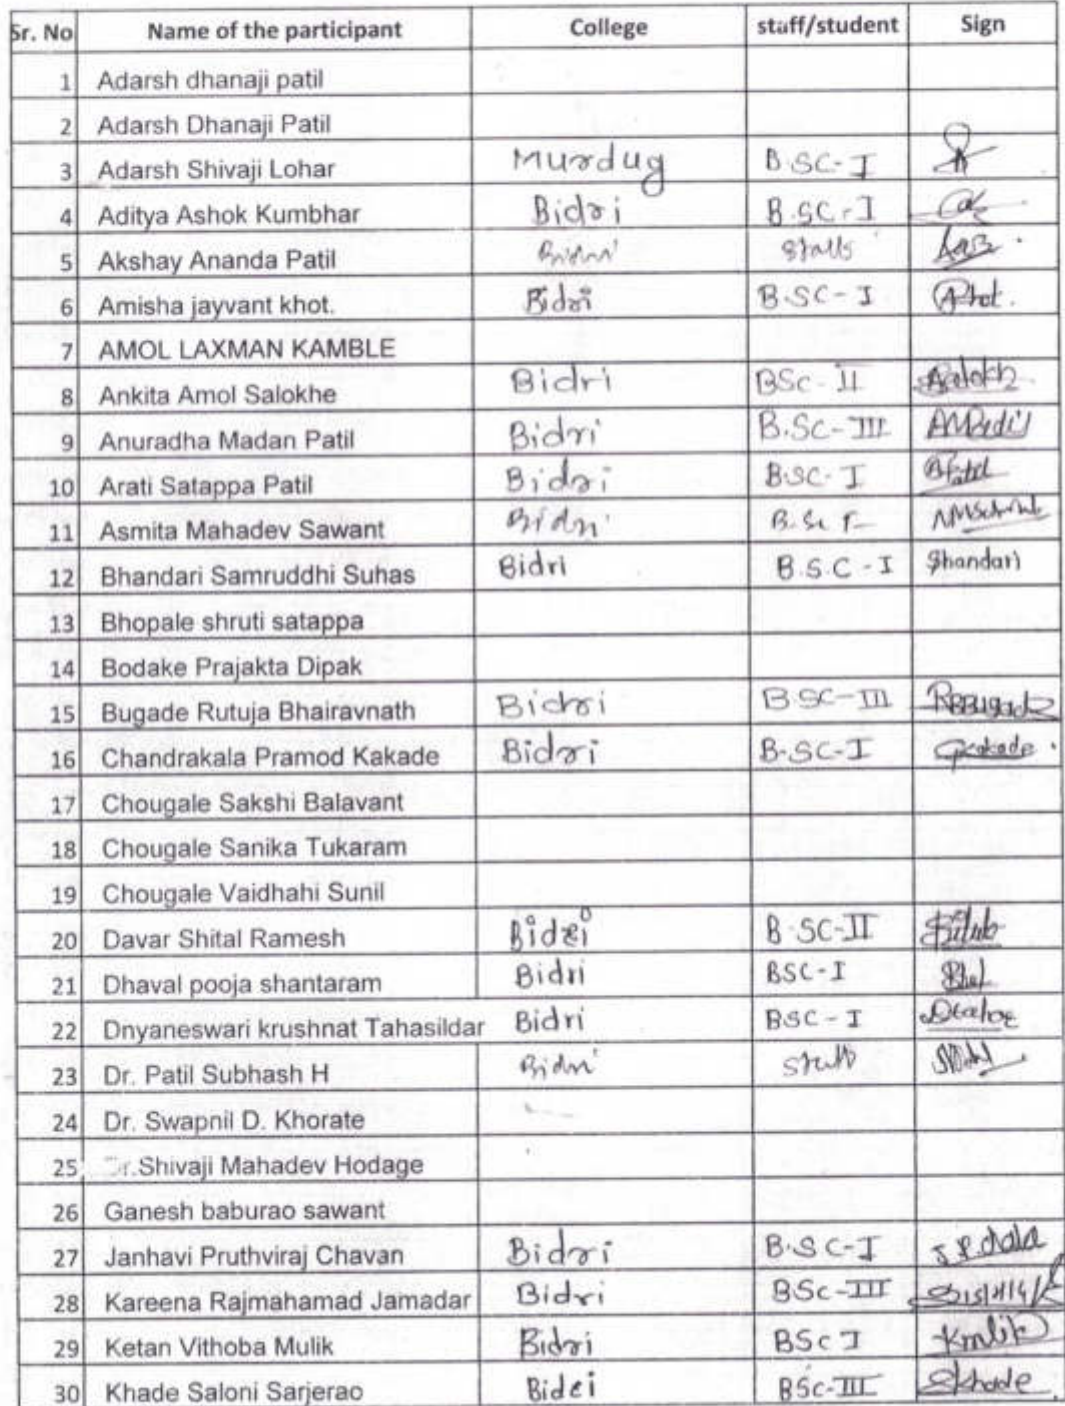 Sr. No Name of the participant College staff/student Sign
1 Adarsh dhanaji patil
2 Adarsh Dhanaji Patil
3 Adarsh Shivaji Lohar Murdug B.SC-I
4 Aditya Ashok Kumbhar Bidri B.SC-I
5 Akshay Ananda Patil Bidri staff
6 Amisha jayvant khot. Bidri B.SC-I Akhot.
7 AMOL LAXMAN KAMBLE
8 Ankita Amol Salokhe Bidri BSc-II
9 Anuradha Madan Patil Bidri B.Sc-III AMPatil
10 Arati Satappa Patil Bidri B.SC-I
11 Asmita Mahadev Sawant Bidri
12 Bhandari Samruddhi Suhas Bidri B.S.C-I Bhandari
13 Bhopale shruti satappa
14 Bodake Prajakta Dipak
15 Bugade Rutuja Bhairavnath Bidri B.SC-III RBBugade
16 Chandrakala Pramod Kakade Bidri B.SC-I
17 Chougale Sakshi Balavant
18 Chougale Sanika Tukaram
19 Chougale Vaidhahi Sunil
20 Davar Shital Ramesh Bidri B.SC-II
21 Dhaval pooja shantaram Bidri BSC-I
22 Dnyaneswari krushnat Tahasildar Bidri BSC-I
23 Dr. Patil Subhash H Bidri staff
24 Dr. Swapnil D. Khorate
25 Dr.Shivaji Mahadev Hodage
26 Ganesh baburao sawant
27 Janhavi Pruthviraj Chavan Bidri B.SC-I
28 Kareena Rajmahamad Jamadar Bidri BSc-III
29 Ketan Vithoba Mulik Bidri BSc I Kmlik
30 Khade Saloni Sarjerao Bidri BSc-III Skhade